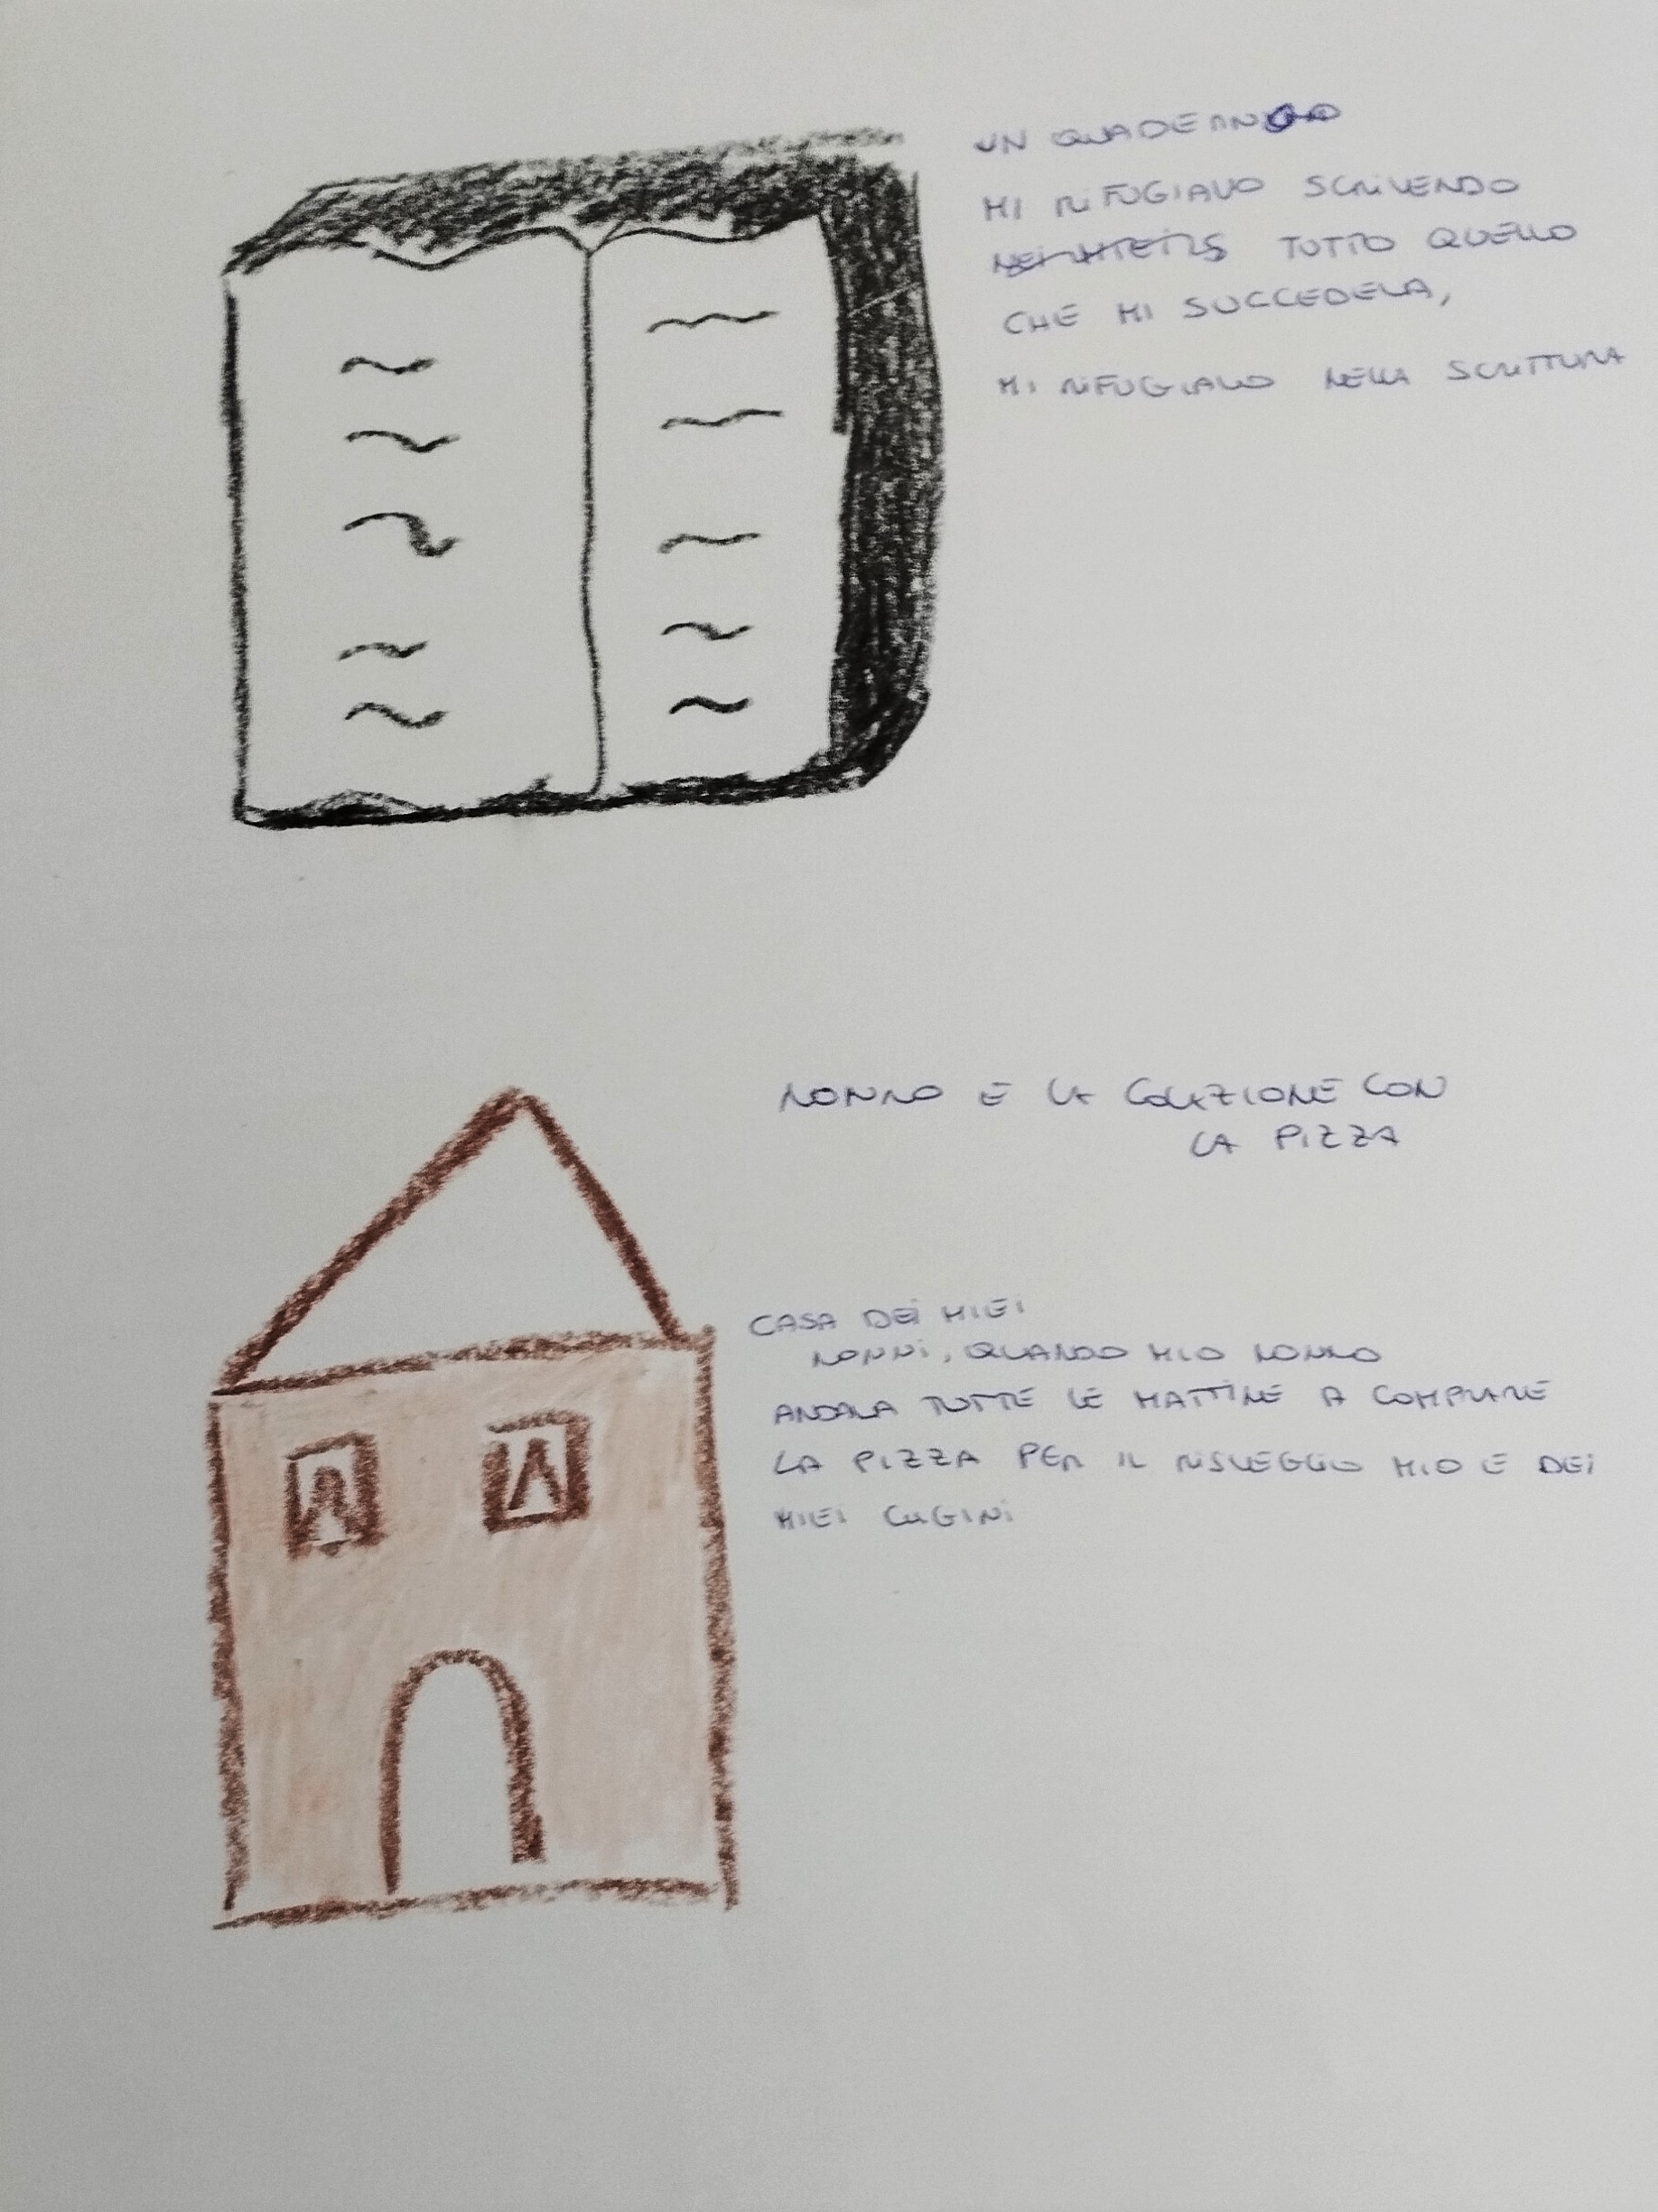 UN QUADERNO
MI RIFUGIAVO SCRIVENDO
TUTTO QUELLO
CHE MI SUCCEDEVA,
MI RIFUGIAVO NELLA SCRITTURA
NONNO E LA COLAZIONE CON
LA PIZZA
CASA DEI MIEI
NONNI, QUANDO MIO NONNO
ANDAVA TUTTE LE MATTINE A COMPRARE
LA PIZZA PER IL RISVEGLIO MIO E DEI
MIEI CUGINI